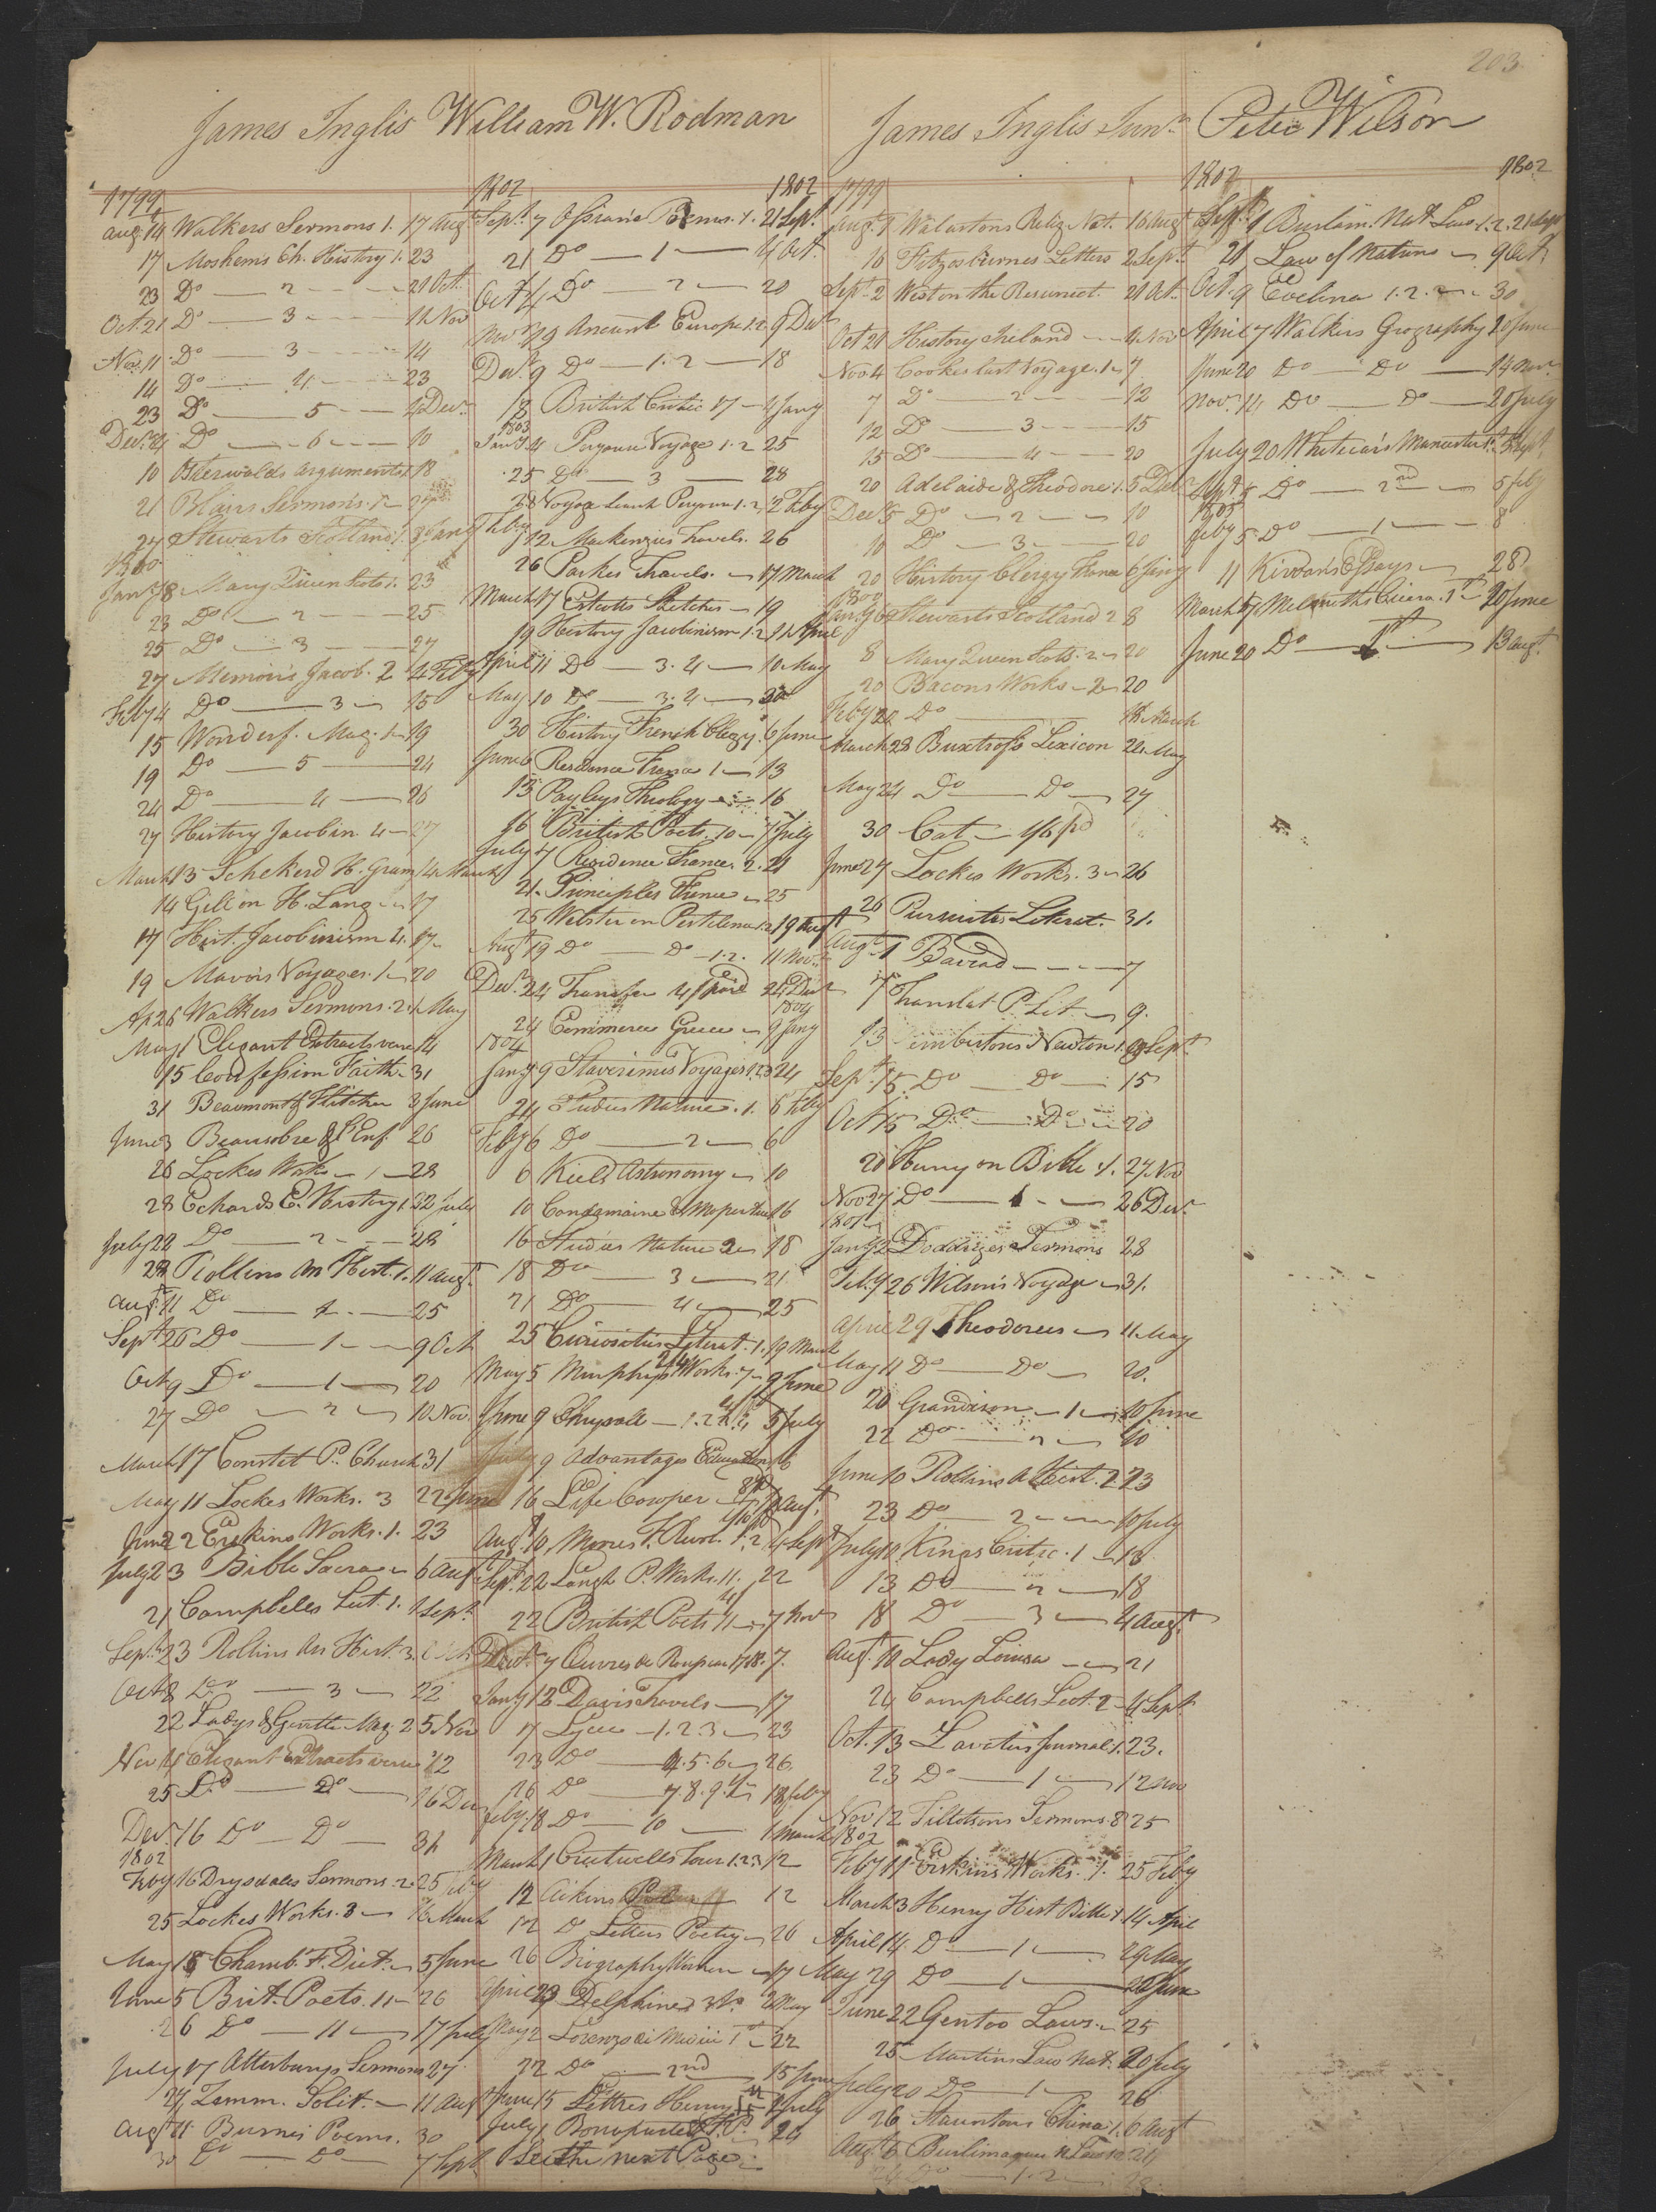 203
James Inglis
1799
Augt 14 Walkers Sermons 1. 17 Augt
17 Moshems Ch. History 1. 23
23 Do 2 21 Oct.
Oct. 21 Do 3 11 Nov
Nov. 11 Do 3 14
14 Do 4 23
23 Do 5 4 Decr
Decr 4 Do 6 10
10 Osterwalds arguments 1 18
21 Blairs Sermons. 1 27
27 Stewarts Scotland 1. 8 Jany
1800
Jany 18 Mary Queen Scots 1. 23
23 Do 2 25
25 Do 3 27
27 Memoirs Jacob. 2 4 Feby
Feby 4 Do 3 15
15 Wonderf. Mag. 1 19
19 Do 5 24
24 Do 4 26
27 History Jacobin. 4 27
March 13 Schekerd H. Gram 14 March
14 Gill on H. Lang 17
17 Hist. Jacobinism 4. 17
19 Mavors Voyages. 1 20
Ap 26 Walkers Sermons. 2 1 May
May 1 Elegant Extracts verse 14
15 Confession Faith 31
31 Beaumont & Flitcher 3 June
June 3 Beausobre & L'Enf. 26
26 Lockes Works 1 28
28 Echards E. History 1. 22 July
July 22 Do 2 28
28 Rollins An Hist. 1. 11 Augt
Augt 11 Do 1 25
Sept 26 Do 1 9 Oct
Oct 9 Do 1 20
27 Do 2 10 Nov.
March 17 Constit P. Church 31
May 11 Lockes Works. 3 22 June
June 22 Erskins Works. 1. 23
July 23 Bible Sacra 6 Augt
21 Campbells Lect. 1. 1 Sept.
Sept. 23 Rollins An Hist. 3. Oct
Oct 8 Do 3 22
22 Ladys & Gentle Mag. 2 5 Nov
Nov 14 Elegant Extracts verse 12
25 Do Do 16 Decr
Decr 16 Do Do 31
1802
Feby 16 Drysdales Sermons. 2 25 Feby
25 Lockes Works. 3 16 March
May 18 Chamb. F. Dict. 5 June
June 5 Brit. Poets. 11 26
26 Do 11 17 July
July 17 Atterburys Sermons 27
27 Zimm. Solit. 11 Augt
Augt 11 Burnes Poems. 30
30 Do Do 7 Sept
William W. Rodman
1802 1802
Sept. 7 Ossians Poems. 1. 21 Sept.
21 Do 1 4 Oct.
Oct 4 Do 2 20
Novr 19 Ancient Europe 1.2 9 Decr
Decr 9 Do 1.2 18
18 British Critic 17 4 Jany
1803
Jany 4 Perouse Voyage 1.2 25
25 Do 3 28
28 Voyage Search Perouse 1.2 12 Feby
Feby 12 Mackenzies Travels. 26
26 Parkes Travels. 17 March
March 17 Sketches 19
19 History Jacobinism 1.2 11 April
April 11 Do 3.4 10 May
May 10 Do 3.4 30
30 History French Clergy. 6 June
June 6 Residence France 1 13
13 Payleys Theology 16
16 British Poets. 10 7 July
July 7 Residence France. 2. 21
21 Principles France 25
25 Webster on Pestilence 1.2 19 Augt
Augt 19 Do Do 1.2. 11 Novr
Decr 24 Transfer 4/ paid 24 Decr
24 Commerce Greece 9 Jany 1804
1804
Jany 9 Stavorinus Voyages 1.2.3 24
24 Studies Nature. 1. 6 Feby
Feby 6 Do 2 6
6 Kiels Astronomy 10
10 Condamaine & Mopertius 16
16 Studies Nature 2 18
18 Do 3 21
21 Do 4 25
25 Curiosities Literat. 1. 19 March
May 5 Murphys Works. 7 9 June
June 9 Chrysale 1.2 5 July
July 9 Advantages Education 16
16 Life Cowper Augt
Aug. 10 Moores F. Revol. 1.2 4 Sept
Sept. 22 Langh P. Works. 11. 22
22 British Poets 11 7 Nov
Decr 7 Œuvres de 17.18. 7.
Jany 12 Davis Travels 17
17 Lycee 1.2.3 23
23 Do 4.5.6 26
26 Do 7.8.9. 18 Feby
Feby 18 Do 10 1 March
March 1 Crutwells Tour 1.2.3 12
12 Aikins 12
12 Do Letters Poetry 26
26 Biography Women 17
April 23 Delphine 2 May
May 2 Lorenzo de Medici 1st 22
22 Do 2nd 15 June
June 15 Lettres Henry 1 July
July 1 24
See the next Page
James Inglis Junr
1799
Augt. 9 Walastons Relig. Nat. 16 Augt
16 Fitzosburnes Letters 2 Sept.
Sept. 2 West on the Resurrect. 21 Oct.
Oct 21 History Ireland 4 Nov
Nov 4 Cookes last Voyage. 1 7
7 Do 2 12
12 Do 3 15
15 Do 4 20
20 Adelaide & Theodore 1. 5 Decr
Decr 5 Do 2 10
10 Do 3 20
20 History Clergy France 6 Jany
1800
Jany 6 Stewarts Scotland 2 8
8 Mary Queen Scots. 2 20
20 Bacons Works 2 20
Feby 22 Do 18 March
March 28 Buxtrofs Lexicon 24 May
May 24 Do Do 27
30 Cat 1/6 pd
June 27 Lockes Works. 3 26
26 Pursuits Literat. 31.
Augt 1 Bacrad 7
7 Translat P. Lit. 9.
13 Pimbertons Newton 1. Sept.
Sept. 15 Do Do 15
Oct 15 Do Do 20
20 Henry on Bible 1. 27 Nov
Nov 27 Do 1 26 Decr
1801
Jany 2 Doddriges Sermons 28
Feby 26 Wilson's Voyage 31.
April 29 Theodorus 11 May
May 11 Do Do 20.
20 Grandison 1 10 June
22 Do 2 10
June 10 Rollins A Hist. 2 23
23 Do 2 10 July
July 10 Kings Critic. 1 13
13 Do 2 18
18 Do 3 4 Augt.
Augt 10 Lady Louisa 21
21 Campbells Lect. 2 4 Sept.
Oct. 13 Lavaters Journal 1. 23.
23 Do 1 12 Nov
Nov 12 Tillotsons Sermons. 8 25
1802
Feby 11 Erskins Works. 1. 25 Feby
March 3 Henry Hist Bible 1 14 April
April 14 Do 1 29 May
May 29 Do 1 22 June
June 22 Gentoo Laws. 25
25 Martins Law Nat. 20 July
July 20 Do 1 26
26 Stauntons China 1. 6 Augt
Augt 6 Burlimaques N Laws 24
Do 1.2
Peter Wilson
1802 1802
Sept. 1 Burlam. Nat Law 1.2. 21 Sept
21 Law of Nations 9 Oct.
Oct. 9 Evelina 1.2. 30
April 7 Walkers Geography 20 June
June 20 Do Do 14 Novr
Novr 14 Do Do 20 July
July 20 Whitecar's Manchester 1st. 5 Sept.
Sept. 5 Do 2nd 5 Feby
Feby 5 Do 1 8
11 Kirvan's Essays 28
March 7 Melmoths Cicero. 1st 20 June
June 20 Do 1st 13 Augt.